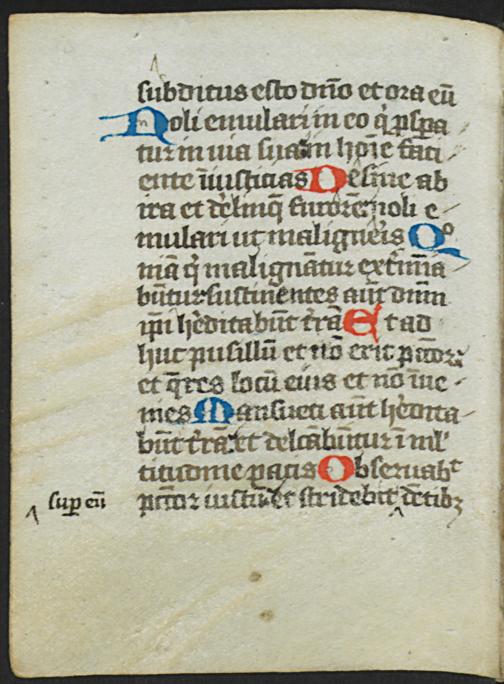 subditus esto dnīo et ora eū
Noli emulari in eo q̇ pspa
tur in uia sua in hoīe faci
ente iīusticias Desine ab
ira et delinq̄ furorē noli e
mulari ut maligneris Qo
niā q̇ malignātur extīmīa
būtur sustinentes aūt dnīm
ipī hēditabūt trā Et ad
huc pusillū et nō erit pctor
et q̄res locū eius et nō īue
nies Mansueti aūt hēdita
būt trā et delcābūtur ī ml
titudine pacis Obseruabt
pctor iustū et stridebit dētibꝫ
sup eū